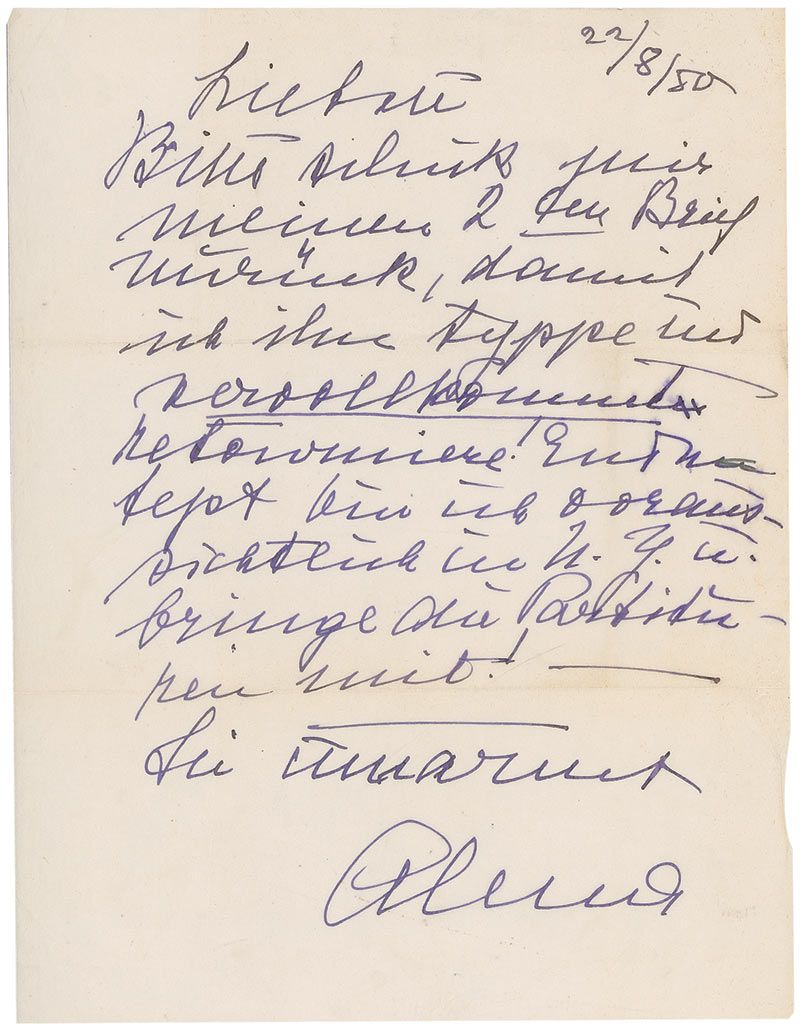 22/8/50
Liebste
Bitte schick mir
meinen 2ten Brief
zurück, damit
ich ihn typpe und
vervollkommnet
retourniere! Ende
Sept bin ich voraus-
sichtlich in N. Y. u.
bringe die Partitu-
ren mit! —
Sie umarmt
Alma